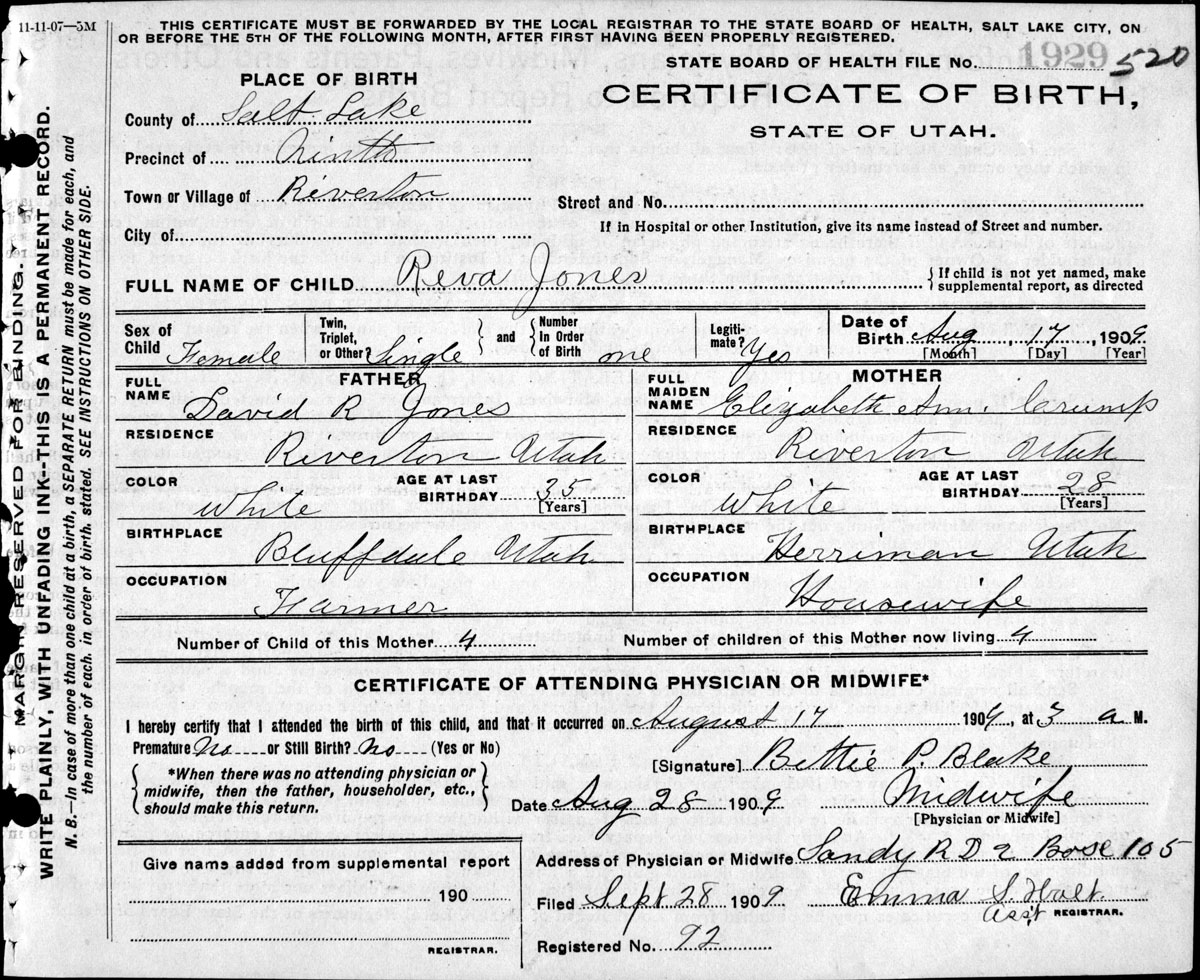 11-11-07—5M
THIS CERTIFICATE MUST BE FORWARDED BY THE LOCAL REGISTRAR TO THE STATE BOARD OF HEALTH, SALT LAKE CITY, ON
OR BEFORE THE 5TH OF THE FOLLOWING MONTH, AFTER FIRST HAVING BEEN PROPERLY REGISTERED.
STATE BOARD OF HEALTH FILE No. 1929 520
PLACE OF BIRTH
CERTIFICATE OF BIRTH,
STATE OF UTAH.
County of Salt Lake
Precinct of Ninth
Town or Village of Riverton
Street and No.
City of
If in Hospital or other Institution, give its name instead of Street and number.
FULL NAME OF CHILD Reva Jones
{ If child is not yet named, make
supplemental report, as directed
Sex of Child Female
Twin, Triplet, or Other? Single } and { Number In Order of Birth one
Legiti-mate? Yes
Date of Birth Aug, 17, 1909
[Month] [Day] [Year]
FATHER
FULL NAME David R Jones
RESIDENCE Riverton Utah
COLOR White
AGE AT LAST BIRTHDAY 35 [Years]
BIRTHPLACE Bluffdale Utah.
OCCUPATION Farmer
MOTHER
FULL MAIDEN NAME Elizabeth Ann. Crump
RESIDENCE Riverton Utah
COLOR White
AGE AT LAST BIRTHDAY 28 [Years]
BIRTHPLACE Herriman Utah
OCCUPATION Housewife
Number of Child of this Mother 4
Number of children of this Mother now living 4
CERTIFICATE OF ATTENDING PHYSICIAN OR MIDWIFE*
I hereby certify that I attended the birth of this child, and that it occurred on August 17 1909, at 3 a M.
Premature No or Still Birth? No (Yes or No)
[Signature] Bettie P. Blake
{ *When there was no attending physician or
midwife, then the father, householder, etc.,
should make this return. }
Date Aug 28 1909 Midwife
[Physician or Midwife]
Give name added from supplemental report
190
REGISTRAR.
Address of Physician or Midwife Sandy R D 2 Bose 105
Filed Sept 28 1909 Emma S. Holt.
Ass't REGISTRAR.
Registered No. 92
MARGIN RESERVED FOR BINDING.
WRITE PLAINLY, WITH UNFADING INK—THIS IS A PERMANENT RECORD.
N. B.—In case of more than one child at birth, a SEPARATE RETURN must be made for each, and
the number of each, in order of birth, stated. SEE INSTRUCTIONS ON OTHER SIDE.